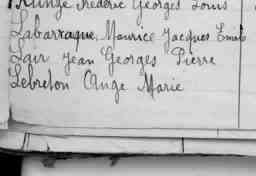 Frédéric Georges Louis
Labarraque, Maurice Jacques Emile
Lair Jean Georges Pierre
Lebreton Ange Marie